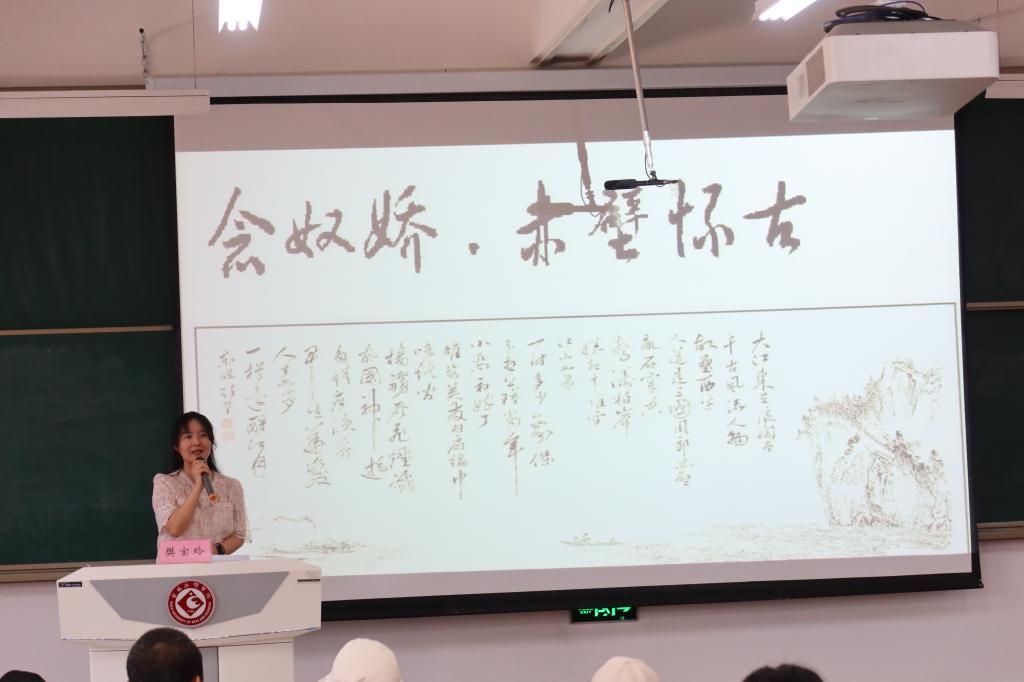 念奴娇·赤壁怀古
大江東去浪淘尽
千古风流人物
故壘西边
人道是三國周郎赤壁
乱石穿空
惊涛拍岸
捲起千堆雪
江山如畫
一时多少豪傑
遥想公瑾当年
小乔初嫁了
雄姿英发羽扇纶巾
樯橹灰飞煙滅
故國神游
多情应笑我
早生华发
人生如梦
一樽还酹江月
樊宝玲
UNIVERSITY OF ARTS AND